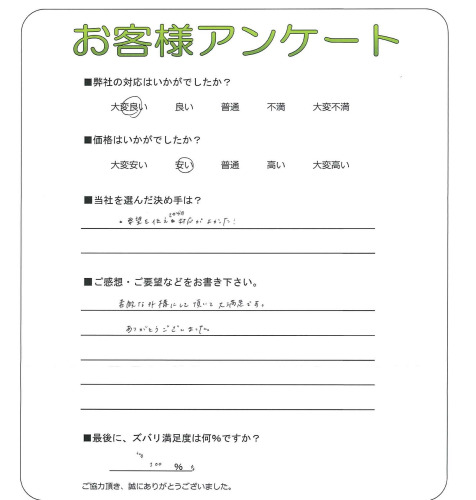 お客様アンケート
■弊社の対応はいかがでしたか？
大変良い 良い 普通 不満 大変不満
■価格はいかがでしたか？
大変安い 安い 普通 高い 大変高い
■当社を選んだ決め手は？
・要望を伝え 対応がよかった!
■ご感想・ご要望などをお書き下さい。
素敵な外構にして頂いて大満足です。
ありがとうございました。
■最後に、ズバリ満足度は何%ですか？
100 %
ご協力頂き、誠にありがとうございました。